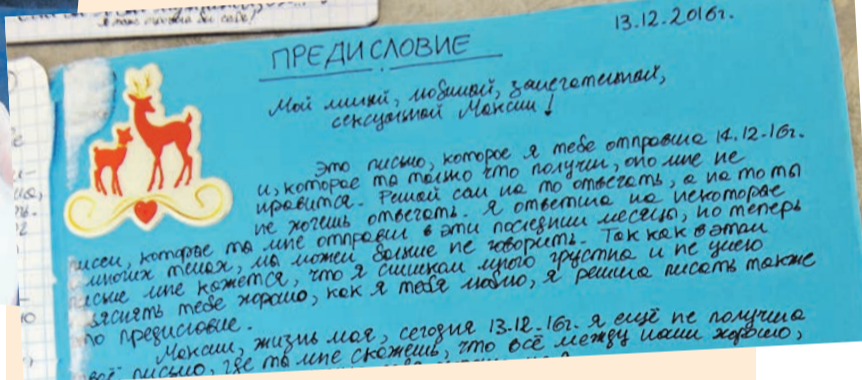 Я тоже
13.12.2016г.
ПРЕДИСЛОВИЕ
Мой милый, любимый, замечательный,
сексуальный Максим!
Это письмо, которое я тебе отправила 14.12.16г.
и, которое ты только что получил, оно мне не
нравится. Решай сам на то отвечать, а на то ты
не хочешь отвечать. Я ответила на некоторые
письма, которые ты мне отправил в эти последнии месяцы, но теперь
многих темах, мы можем больше не говорить. Так как в этом
письме мне кажется, что я слишком много грустна и не умею
объяснять тебе хорошо, как я тебя люблю, я решила писать также
это предисловие.
Максим, жизнь моя, сегодня 13.12.16г. я ещё не получила
твоё письмо, где ты мне скажешь, что всё между нами хорошо,